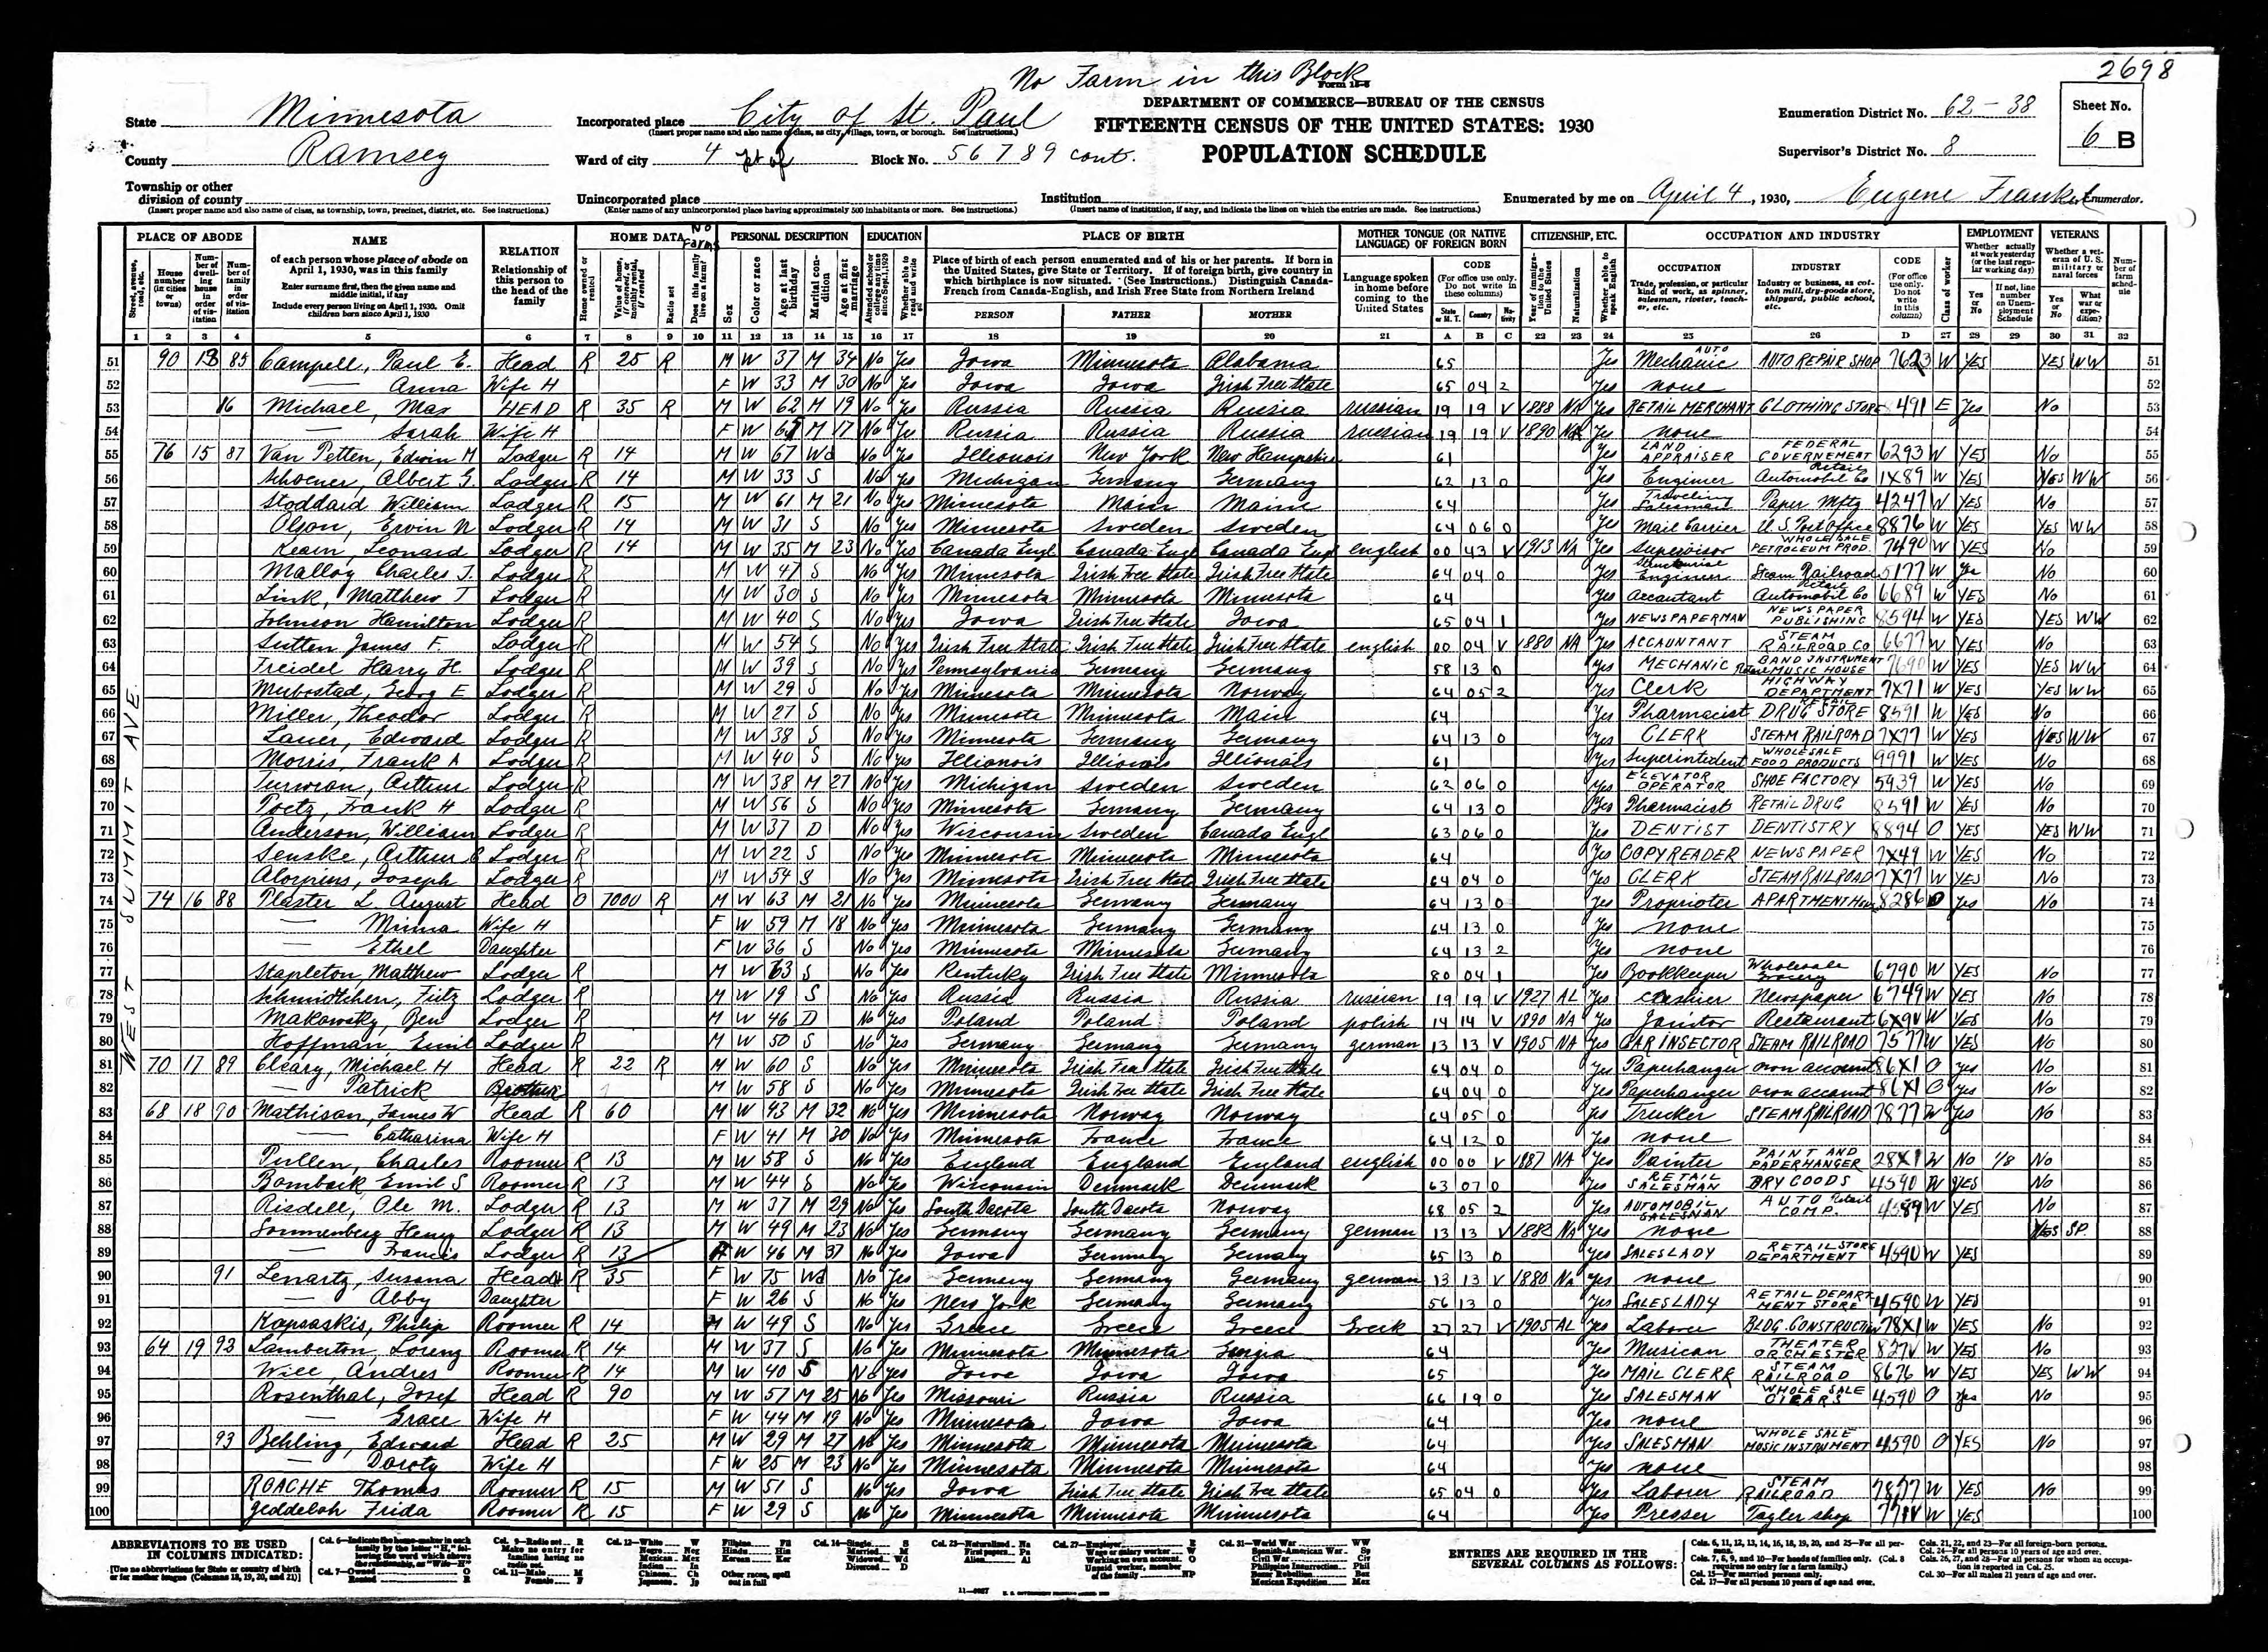 2698
No Farm in this Block
Form 15-6
DEPARTMENT OF COMMERCE—BUREAU OF THE CENSUS
FIFTEENTH CENSUS OF THE UNITED STATES: 1930
POPULATION SCHEDULE
State Minnesota
County Ramsey
Township or other division of county
(Insert proper name and also name of class, as township, town, precinct, district, etc. See instructions.)
Incorporated place City of St. Paul
(Insert proper name and also name of class, as city, village, town, or borough. See instructions.)
Ward of city 4 pt of Block No. 5 6 7 8 9 cont.
Unincorporated place
(Enter name of any unincorporated place having approximately 500 inhabitants or more. See instructions.)
Institution
(Insert name of institution, if any, and indicate the lines on which the entries are made. See instructions.)
Enumeration District No. 62-38
Supervisor's District No. 8
Sheet No. 6 B
Enumerated by me on April 4, 1930, Eugene Frankel Enumerator.
PLACE OF ABODE NAME RELATION HOME DATA No Farms PERSONAL DESCRIPTION EDUCATION PLACE OF BIRTH MOTHER TONGUE (OR NATIVE LANGUAGE) OF FOREIGN BORN CITIZENSHIP, ETC. OCCUPATION AND INDUSTRY EMPLOYMENT VETERANS
WEST SUMMIT AVE.
51 90 13 85 Campell, Paul E. Head R 25 R M W 37 M 34 No Yes Iowa Minnesota Alabama 65 Yes Mechanic AUTO AUTO REPAIR SHOP 7623 W YES YES WW 51
52 — Anna Wife H F W 33 M 30 No Yes Iowa Iowa Irish Free State 65 04 2 Yes none 52
53 86 Michael, Max HEAD R 35 R M W 62 M 19 No Yes Russia Russia Russia russian 19 19 V 1888 NA Yes RETAIL MERCHANT CLOTHING STORE 8491 E Yes No 53
54 — Sarah Wife H F W M 17 No Yes Russia Russia Russia russian 19 19 V 1890 NA Yes none 54
55 76 15 87 Van Petten, Edwin M Lodger R 14 M W 67 Wd No Yes Illionois New York New Hampshire 61 Yes LAND APPRAISER FEDERAL GOVERNEMENT 6293 W YES No 55
56 Schoener, Albert G. Lodger R 14 M W 33 S No Yes Michigan Germany Germany 62 13 0 Yes Enginier Retail Automobil Co 1X89 W YES YES WW 56
57 Stoddard William Lodger R 15 M W 61 M 21 No Yes Minnesota Main Maine 64 Yes Traveling Salesman Paper Mftg 4247 W YES No 57
58 Olson, Ervin N Lodger R 14 M W 31 S No Yes Minnesota Sweden Sweden 64 06 0 Yes Mail Carrier U.S. Post Office 8876 W YES YES WW 58
59 Kearn, Leonard Lodger R 14 M W 35 M 23 No Yes Canada Engl Canada Engl Canada Engl english 00 43 V 1913 NA Yes Supervisor WHOLE SALE PETROLEUM PROD. 7490 W YES No 59
60 Malloy Charles J. Lodger R M W 47 S No Yes Minnesota Irish Free State Irish Free State 64 04 0 Yes Engineer Steam Railroad 5177 W Yes No 60
61 Link, Matthew T Lodger R M W 30 S No Yes Minnesota Minnesota Minnesota 64 Yes Accautant Retail Automobil Co 6689 W YES No 61
62 Johnson Hamilton Lodger R M W 40 S No Yes Iowa Irish Free State Iowa 65 04 1 Yes NEWSPAPERMAN NEWSPAPER PUBLISHING 8594 W YES YES WW 62
63 Sutten James F. Lodger R M W 54 S No Yes Irish Free State Irish Free State Irish Free State english 00 04 V 1880 NA Yes ACCAUNTANT STEAM RAILROAD CO 6677 W YES No 63
64 Treidel Harry H. Lodger R M W 39 S No Yes Pennsylvania Germany Germany 58 13 0 Yes MECHANIC BAND INSTRUMENT Retail MUSIC HOUSE 7690 W YES YES WW 64
65 Georg E Lodger R M W 29 S No Yes Minnesota Minnesota Norway 64 05 2 Yes Clerk HIGHWAY DEPARTMENT 7X71 W YES YES WW 65
66 Miller, Theodor Lodger R M W 27 S No Yes Minnesota Minnesota Main 64 Yes Pharmacist RETAIL DRUG STORE 8591 W YES No 66
67 Lauer, Edward Lodger R M W 38 S No Yes Minnesota Germany Germany 64 13 0 Yes CLERK STEAM RAILROAD 7X77 W YES YES WW 67
68 Morris, Frank A Lodger R M W 40 S No Yes Illionis Illionais Illionais 61 Yes Superintedent WHOLESALE FOOD PRODUCTS 9991 W YES No 68
69 Arthur Lodger R M W 38 M 27 No Yes Michigan Sweden Sweden 62 06 0 Yes ELEVATOR OPERATOR SHOE FACTORY 5939 W YES No 69
70 Poetz, Frank H Lodger R M W 56 S No Yes Minnesota Germany Germany 64 13 0 Yes Pharmacist RETAIL DRUG 8591 W YES No 70
71 Anderson, William Lodger R M W 37 D No Yes Wisconsin Sweden Canada Engl 63 06 0 Yes DENTIST DENTISTRY 8894 O YES YES WW 71
72 Senske, Arthur Lodger R M W 22 S No Yes Minnesota Minnesota Minnesota 64 Yes COPYREADER NEWSPAPER 7X49 W YES No 72
73 Joseph Lodger R M W 54 S No Yes Minnesota Irish Free State Irish Free State 64 04 0 Yes CLERK STEAM RAILROAD 7X77 W YES No 73
74 74 16 88 Plaster L. August Head O 7000 R M W 63 M 21 No Yes Minnesota Germany Germany 64 13 0 Yes Proprioter APARTMENT 8286 O Yes No 74
75 — Minna Wife H F W 59 M 18 No Yes Minnesota Germany Germany 64 13 0 Yes none 75
76 — Ethel Daughter F W 36 S No Yes Minnesota Minnesota Germany 64 13 2 Yes none 76
77 Stapleton, Matthew Lodger R M W 63 S No Yes Kentucky Irish Free State Minnesota 80 04 1 Yes Bookkeeper Wholesale Grocery 6790 W YES No 77
78 Schmidtchen, Fritz Lodger R M W 19 S No Yes Russia Russia Russia russian 19 19 V 1927 AL Yes Newspaper 6749 W YES No 78
79 Makowsky, Ben Lodger R M W 46 D No Yes Poland Poland Poland polish 14 14 V 1890 NA Yes Janitor Restaurant 6X9V W YES No 79
80 Hoffman Emil Lodger R M W 50 S No Yes Germany Germany Germany german 13 13 V 1905 NA Yes CAR INSECTOR STEAM RAILROAD 7577 W YES No 80
81 70 17 89 Cleary, Michael H Head R 22 R M W 60 S No Yes Minnesota Irish Free State Irish Free State 64 04 0 Yes Paperhanger own account 86X1 O Yes No 81
82 — Patrick Brother M W 58 S No Yes Minnesota Irish Free State Irish Free State 64 04 0 Yes Paperhanger own account 86X1 O Yes No 82
83 68 18 90 Mathison, James W Head R 60 M W 43 M 32 No Yes Minnesota Norway Norway 64 05 0 Yes Trucker STEAM RAILROAD 7877 W Yes No 83
84 — Catharina Wife H F W 41 M 30 No Yes Minnesota France France 64 12 0 Yes none 84
85 Pullen, Charles Roomer R 13 M W 58 S No Yes England England England english 00 00 V 1887 NA Yes Painter PAINT AND PAPERHANGER 28X1 W No 1/8 No 85
86 Emil S Roomer R 13 M W 44 S No Yes Wisconsin Denmark Denmark 63 07 0 Yes RETAIL SALESMAN DRY GOODS 4590 W YES No 86
87 Risdell, Ole M. Lodger R 13 M W 37 M 29 No Yes South Dacota South Dacota Norway 68 05 2 Yes AUTOMOBIL SALESMAN AUTO Retail COMP. 4589 W YES No 87
88 Sonnenberg Henry Lodger R 13 M W 49 M 23 No Yes Germany Germany Germany german 13 13 V 1882 NA Yes none YES SP. 88
89 — Francis Lodger R 13 F W 46 M 37 No Yes Iowa Germany Germany 65 13 0 Yes SALESLADY RETAIL STORE DEPARTMENT 4590 W YES 89
90 91 Lenartz, Susana Head R 35 F W 75 Wd No Yes Germany Germany Germany german 13 13 V 1880 Na Yes none 90
91 — Abby Daughter F W 26 S No Yes New York Germany Germany 56 13 0 Yes SALESLADY RETAIL DEPARTMENT STORE 4590 W YES 91
92 Kapsaskis, Philip Roomer R 14 M W 49 S No Yes Greece Greece Greece Greek 27 27 V 1905 AL Yes Laborer BLDG. CONSTRUCTION 78X1 W YES No 92
93 64 19 92 Lamberton, Lorenz Roomer R 14 M W 37 S No Yes Minnesota Minnesota Georgia 64 Yes Musican THEATER ORCHESTER 827V W YES No 93
94 Will, Andres Roomer R 14 M W 40 S No Yes Iowa Iowa Iowa 65 Yes MAIL CLERK STEAM RAILROAD 8676 W YES YES WW 94
95 Rosenthal, Josef Head R 90 M W 57 M 25 No Yes Missouri Russia Russia 66 19 0 Yes SALESMAN WHOLE SALE CIGARS 4590 O Yes No 95
96 — Grace Wife H F W 44 M 19 No Yes Minnesota Iowa Iowa 64 Yes none 96
97 93 Behling, Edward Head R 25 M W 29 M 27 No Yes Minnesota Minnesota Minnesota 64 Yes SALESMAN WHOLE SALE MUSIC INSTRUMENT 4590 O YES No 97
98 — Doroty Wife H F W 25 M 23 No Yes Minnesota Minnesota Minnesota 64 Yes none 98
99 ROACHE Thomas Roomer R 15 M W 51 S No Yes Iowa Irish Free State Irish Free State 65 04 0 Yes Laborer STEAM RAILROAD 7877 W YES No 99
100 Jeddeloh Frida Roomer R 15 F W 29 S No Yes Minnesota Minnesota Minnesota 64 Yes Presser Tayler shop 771V W YES 100
ABBREVIATIONS TO BE USED IN COLUMNS INDICATED:
[Use no abbreviations for State or country of birth or for mother tongue (Columns 18, 19, 20, and 21)]
ENTRIES ARE REQUIRED IN THE SEVERAL COLUMNS AS FOLLOWS: